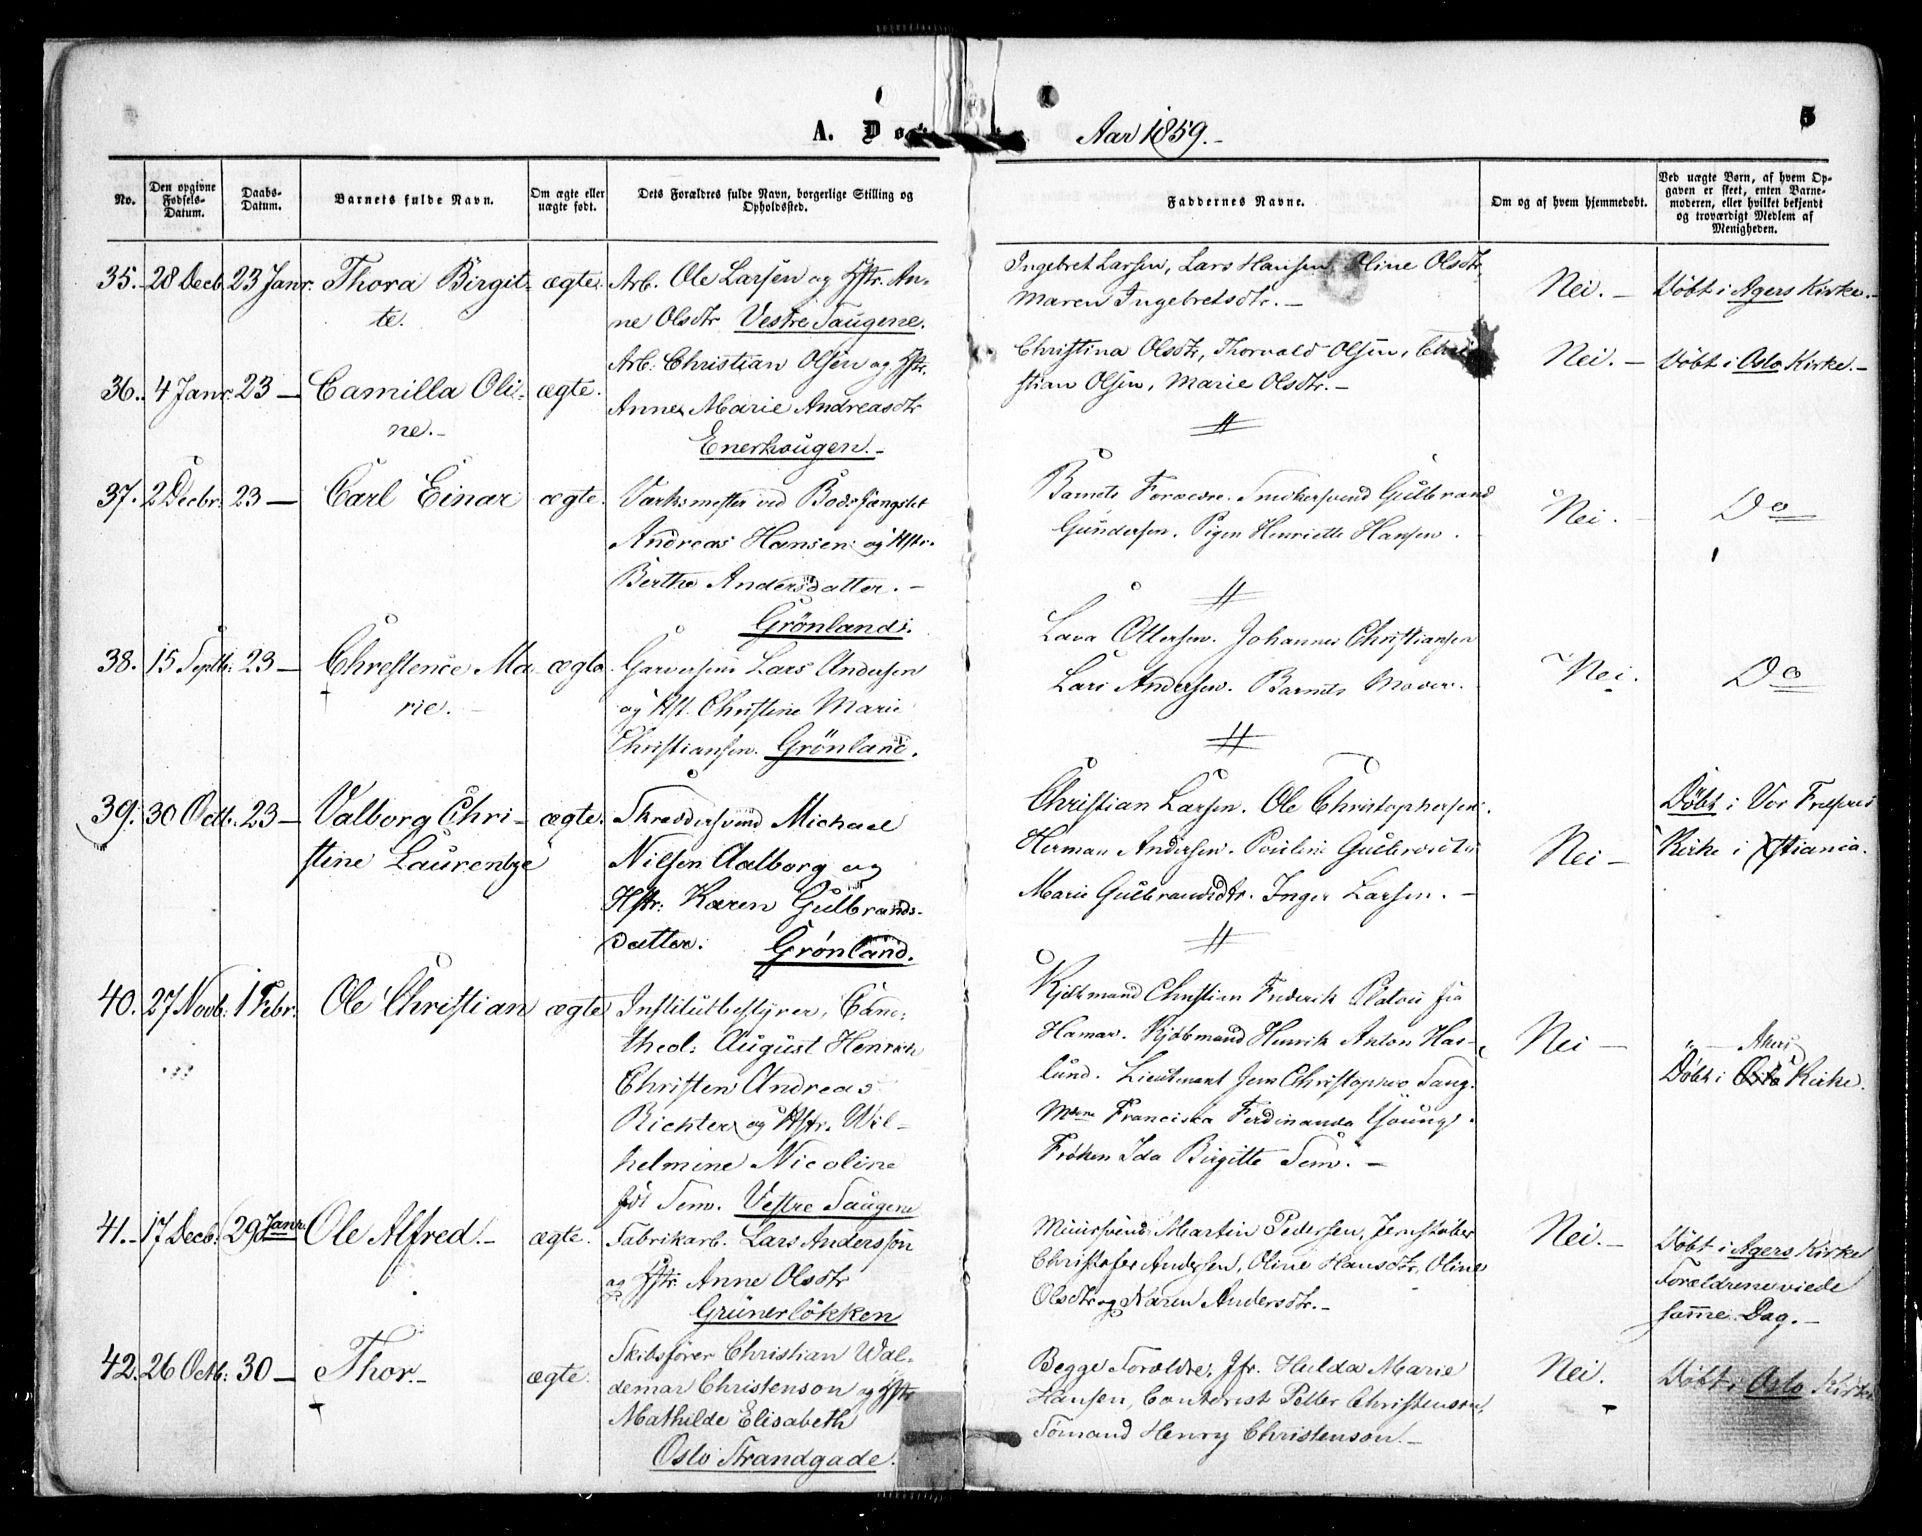 A. Dø
Aar 1859.-
5
No.
Den opgivne Fødsels-Datum.
Daabs-Datum.
Barnets fulde Navn.
Om ægte eller uægte født.
Dets Forældres fulde Navn, borgerlige Stilling og Opholdssted.
Faddernes Navne.
Om og af hvem hjemmedøbt.
Ved uægte Børn, af hvem Opgaven er skeet, enten Barnemoderen, eller hvilket bekjendt og troværdigt Medlem af Menigheden.
35. 28 Decb. 23 Janr. Thora Birgit- ægte.
te.
Arb. Ole Larsen og Hstr. An-
ne Olsdtr Vestre Taugene.
Ingebret Larsen, Lars Hansen, Oline Olsdtr,
Maren Ingebretsdtr.-
Nei.-
Døbt i Agers Kirke.-
36. 4 Janr. 23- Camilla Oli- ægte.
ne.-
Arb. Christian Olsen og Hstr.
Anne Marie Andreasdtr
Enerhaugen.-
Christina Olsdtr, Thorvald Olsen, Chri
stian Olsen, Marie Olsdtr.-
Nei.-
Døbt i Oslo Kirke.-
37. 2 Decbr. 23- Carl Einar ægte.
Værksmester ved Bodsfængslet
Andreas Hansen og Hstr.
Berthe Andersdatter.-
Grönland.
Barnets Forældre. Snedkersvend Gulbrand
Gundersen. Pigen Henriette Hansen.
Nei.
Do
38. 15 Septb. 23- Chrestence Ma- ægte
rie.-
Garversvend Lars Andersen
og Hst. Christine Marie
Christiansen. Grönland.
Lava Ottersen. Johannes Christiansen
Lars Andersen. Barnets Moder.
Nei.
Do
39. 30 Octb. 23- Valborg Chri- ægte.
stine Laurentze
Skreddersvend Michael
Nilsen Aalborg og
Hstr: Karen Gulbrands-
datter. Grønland.
Christian Larsen. Ole Christophersen.
Herman Andersen. Pouline Gulbrandsdtr
Marie Gulbrandsdtr. Inger Larsen.-
Nei-
Døbt i Vor Frelsers
Kirke i Xstiania.
40. 27 Novb. 1 Febr. Ole Christian ægte
Institutbestyrer, Cand:
theol: August Henrich
Christen Andreas
Richter og Hstr. Wil-
helmine Nicoline
født Sem. Vestre Taugene
Kjøbmand Christian Frederik Platou fra
Hamar. Kjøbmand Henrik Anton Has-
lund. Lieutenant Jens Christopher Sang.
Mdme Franciska Ferdinanda Young.
Frøken Ida Birgitte Sem.-
Nei-
Akers
Døbt i Oslo Kirke.
41.- 17 Decb. 29 Janr. Ole Alfred.- ægte.
Fabrikarb. Lars Andersson
og Hstr. Anne Olsdtr
Grünerløkken
Muursvend Martin Pedersen, Jernstøber
Christofer Andersen, Oline Hansdtr, Oline
Olsdtr og Karen Andersdtr.-
Nei.-
Døbt i Agers Kirke
Forældrene viede
samme Dag.-
42. 26 Octb. 30- Thor.- ægte.
Skibsfører Christian Wal-
demar Christenson og Hstr
Mathilde Elisabeth
Oslo Strandgade.
Begge Forældre, Jfr. Hulda Marie
Hansen, Contorist Peller Christenson,
Sømand Henry Christenson.-
Nei.
Døbt i Oslo Kirke